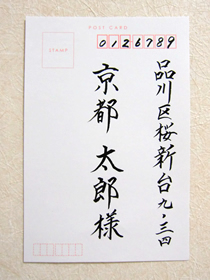 POST CARD
STAMP
0126789
品川区桜新台九・三四
京都 太郎様